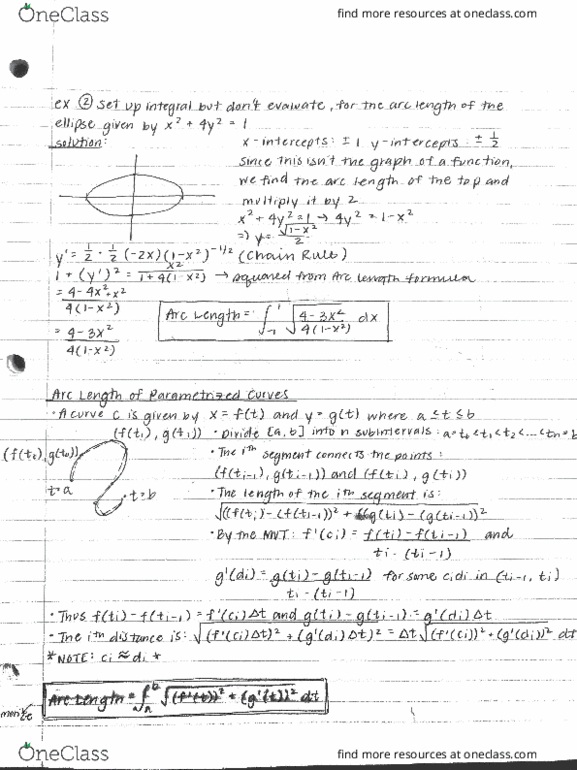 OneClass
find more resources at oneclass.com
ex ② set up integral but don't evaluate, for the arc length of the
ellipse given by x² + 4y² = 1
solution:
x-intercepts: ± 1 y-intercepts: ± 1/2
since this isn't the graph of a function,
we find the arc length of the top and
multiply it by 2
x² + 4y² = 1 → 4y² = 1-x²
=) y = √(1-x²)/2
y' = 1/2 · 1/2 (-2x)(1-x²)^-1/2 (Chain Rule)
1 + (y')² = x²/(1+4(1-x²)) → squared from Arc length formula
= (4-4x²+x²)/(4(1-x²))
= (4-3x²)/(4(1-x²))
Arc Length = ∫₋₁¹ √((4-3x²)/(4(1-x²))) dx
Arc Length of Parametrized Curves
· A curve c is given by x = f(t) and y = g(t) where a ≤ t ≤ b
(f(t₁), g(t₁)) · Divide [a,b] into n subintervals: a=t₀<t₁<t₂<...<tn=b
(f(t₀), g(t₀))
t=a
t=b
· The ith segment connects the points:
(f(ti-1), g(ti-1)) and (f(ti), g(ti))
· The length of the ith segment is:
√((f(ti)-(f(ti-1))² + (g(ti)-(g(ti-1))²
· By the MVT: f'(ci) = (f(ti)-f(ti-1))/(ti-(ti-1)) and
g'(di) = (g(ti)-g(ti-1))/(ti-(ti-1)) for some cidi in (ti-1, ti)
· Thus f(ti)-f(ti-1) = f'(ci)Δt and g(ti)-g(ti-1) = g'(di)Δt
· The ith distance is: √((f'(ci)Δt)² + (g'(di)Δt)² = Δt√(f'(ci))² + (g'(di))² dt
*NOTE: ci ≈ di *
Arc Length = ∫ₐᵇ √(f'(t))² + (g'(t))² dt
OneClass
find more resources at oneclass.com